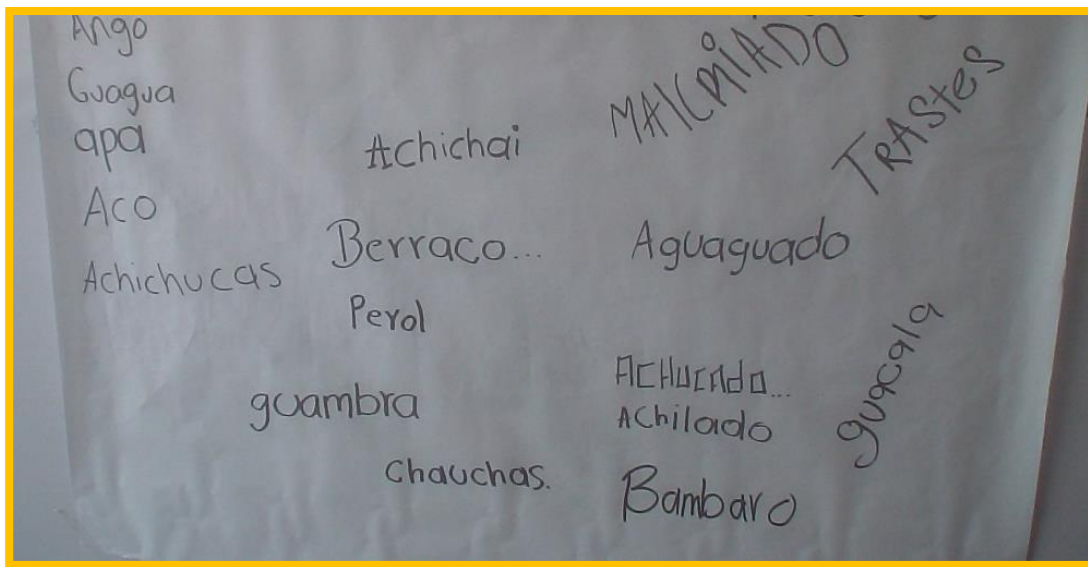 Ango
Guagua
apa
Aco
Achichucas
Achichai
Berraco...
Perol
guambra
Chauchas.
MAlCRIADO
TRAStes
Aguaguado
ACHUCAdO...
AChilado
guacala
Bambaro